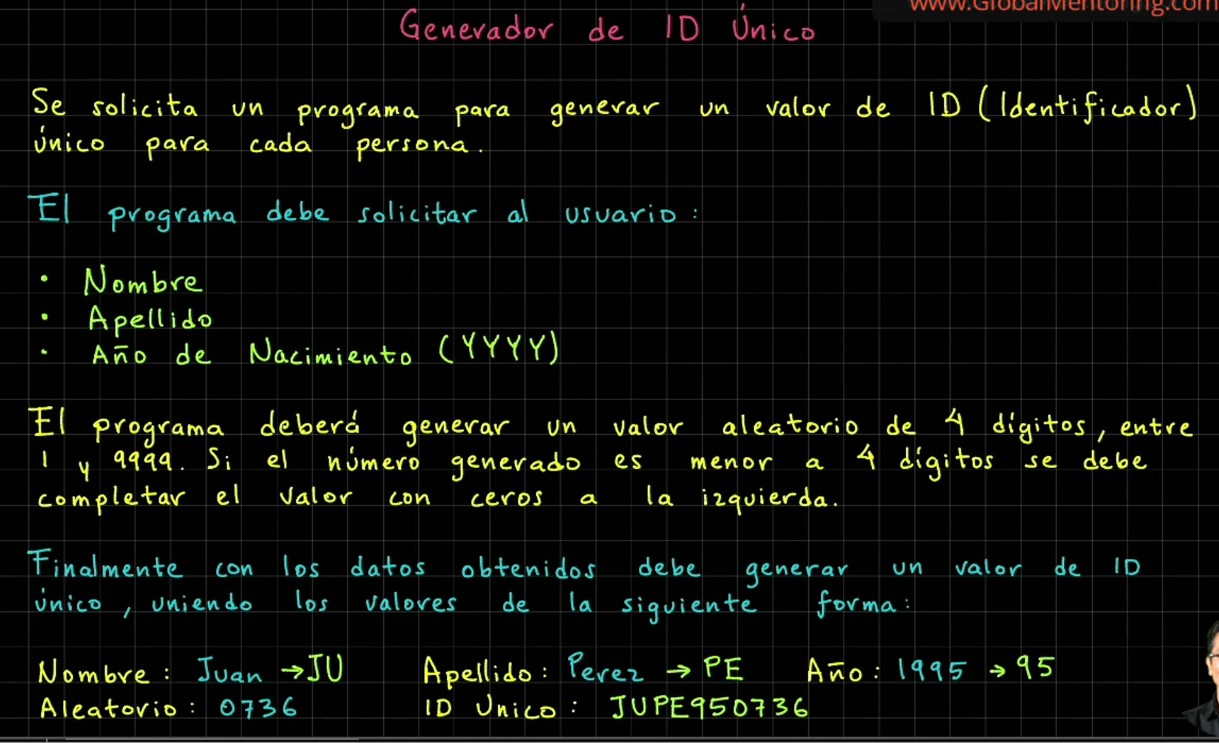 www.GlobalMentoring.com
Generador de ID Único
Se solicita un programa para generar un valor de ID (Identificador)
único para cada persona.
El programa debe solicitar al usuario:
• Nombre
• Apellido
• Año de Nacimiento (YYYY)
El programa deberá generar un valor aleatorio de 4 dígitos, entre
1 y 9999. Si el número generado es menor a 4 dígitos se debe
completar el valor con ceros a la izquierda.
Finalmente con los datos obtenidos debe generar un valor de ID
único, uniendo los valores de la siguiente forma:
Nombre: Juan → JU Apellido: Perez → PE Año: 1995 → 95
Aleatorio: 0736 ID Unico: JUPE950736